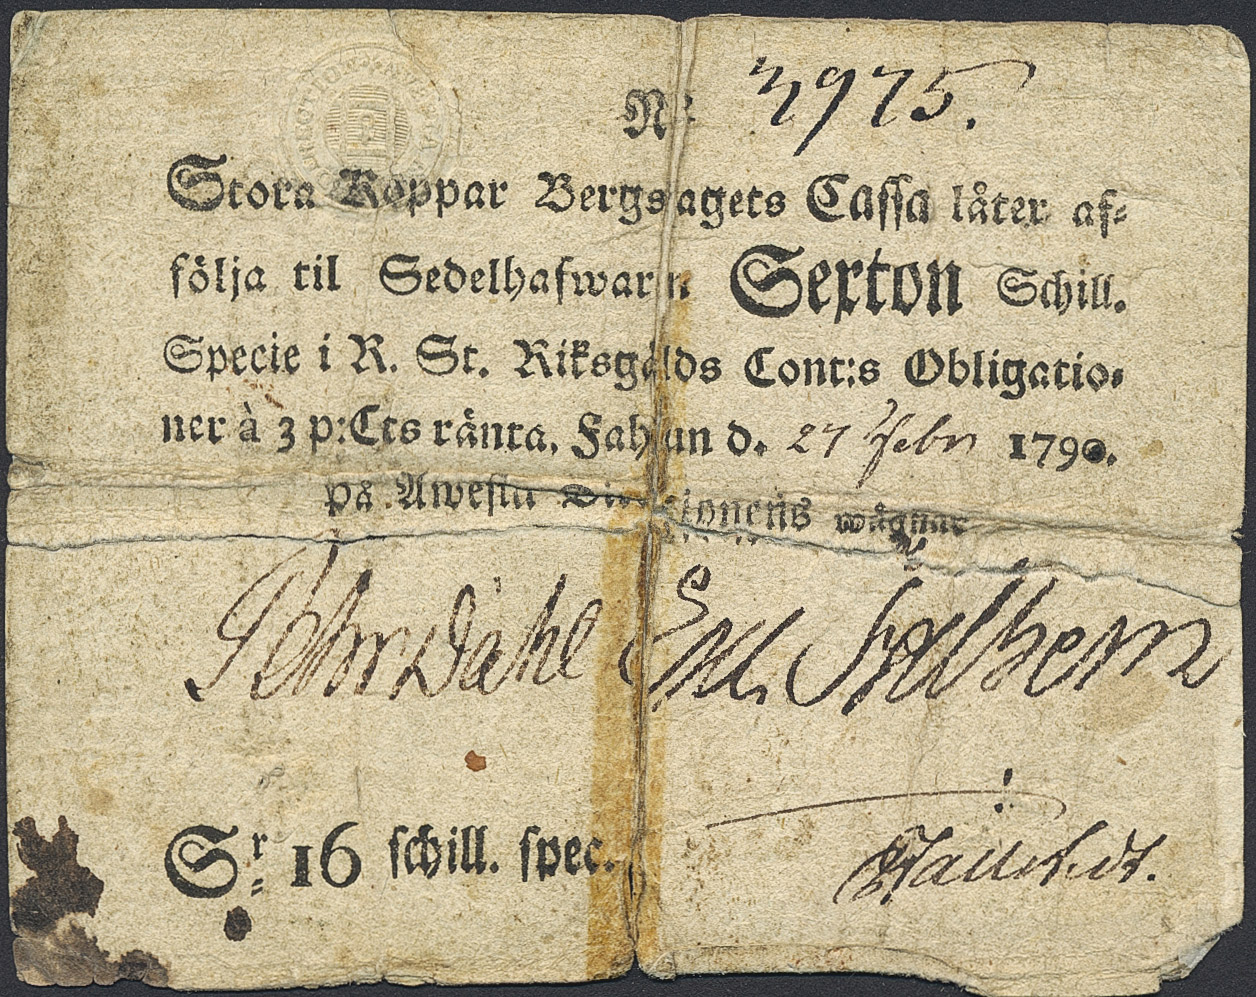 Nr 3975.
Stora Koppar Bergslagets Cassa låter af=
följa til Sedelhafwaren Sexton Schill.
Specie i R. St. Riksgälds Cont:s Obligatio=
ner à 3 p:Cts ränta, Fahlun d. 27 Febr 1790.
på Awesta Directionens wägnar
Pehr Dahl
Sr= 16 schill. spec.